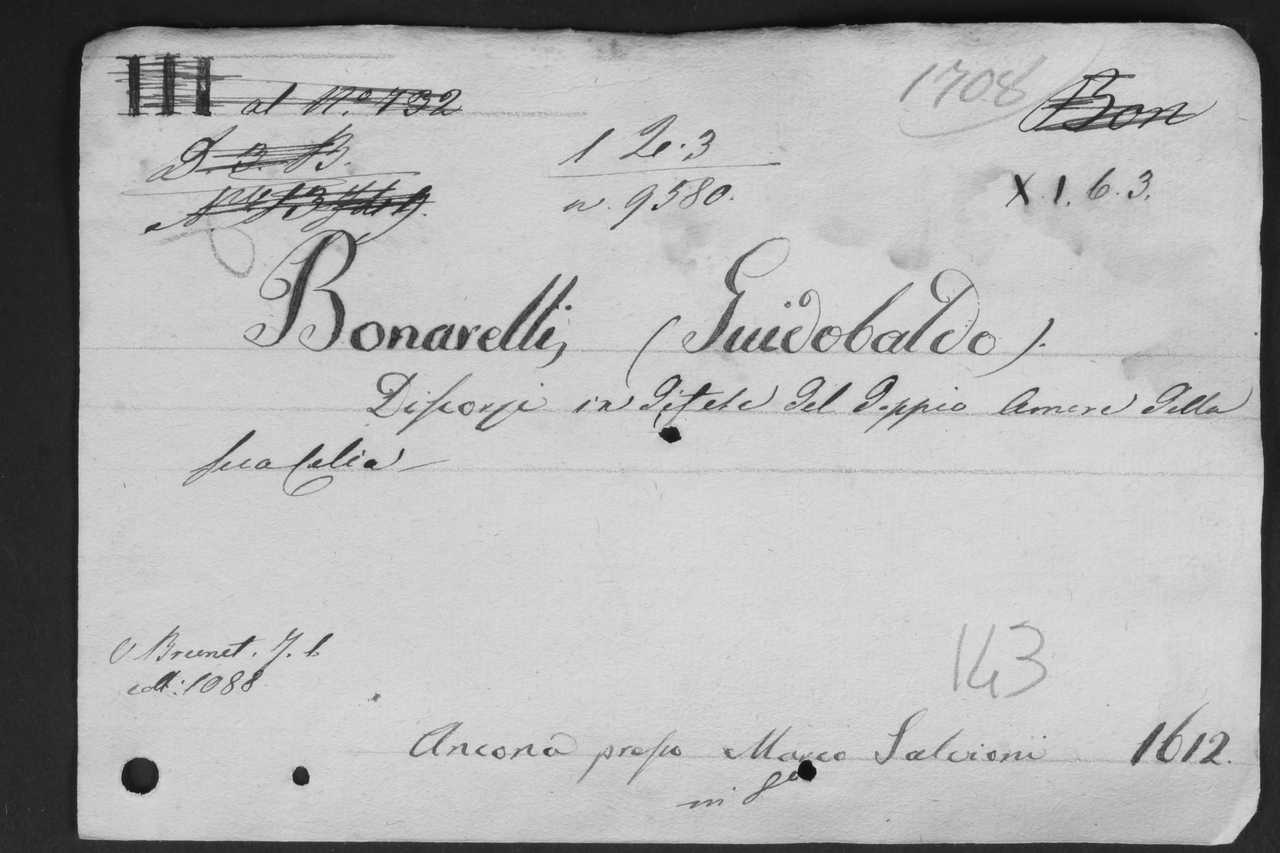 III al N.º 132
1708
Bon
D. 3. B.
1 2e.3
n. 9580.
X. 1. 6. 3.
Bonarelli, (Guidobaldo).
Discorsi in difese del doppio Amore della
sua Celia
V Brunet. T. 1
edit: 1088
143
Ancona presso Marco Salvioni 1612.
in 8º